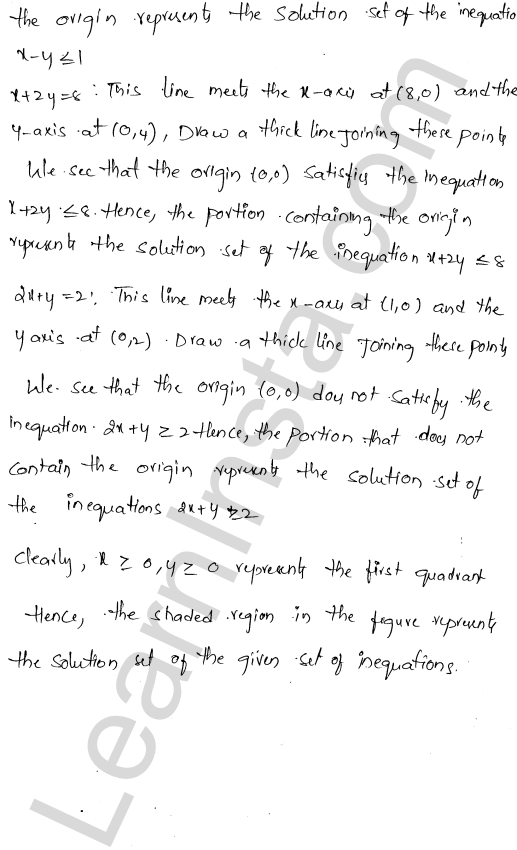 the origin represents the solution set of the inequatio
x-y≤1
x+2y=8: This line meets the x-axis at (8,0) and the
y-axis at (0,4), Draw a thick line joining these points
We see that the origin (0,0) satisfies the inequation
x+2y ≤8. Hence, the portion containing the origin
represents the solution set of the inequation x+2y ≤ 8
2x+y=2: This line meets the x-axis at (1,0) and the
y axis at (0,2). Draw a thick line joining these points
We see that the origin (0,0) does not satisfy the
inequation 2x+y ≥ 2 Hence, the portion that does not
contain the origin represents the solution set of
the inequations 2x+y ≥2
Clearly, x ≥ 0, y ≥ 0 represents the first quadrant
Hence, the shaded region in the figure represents
the solution set of the given set of inequations.
LearnInsta.com